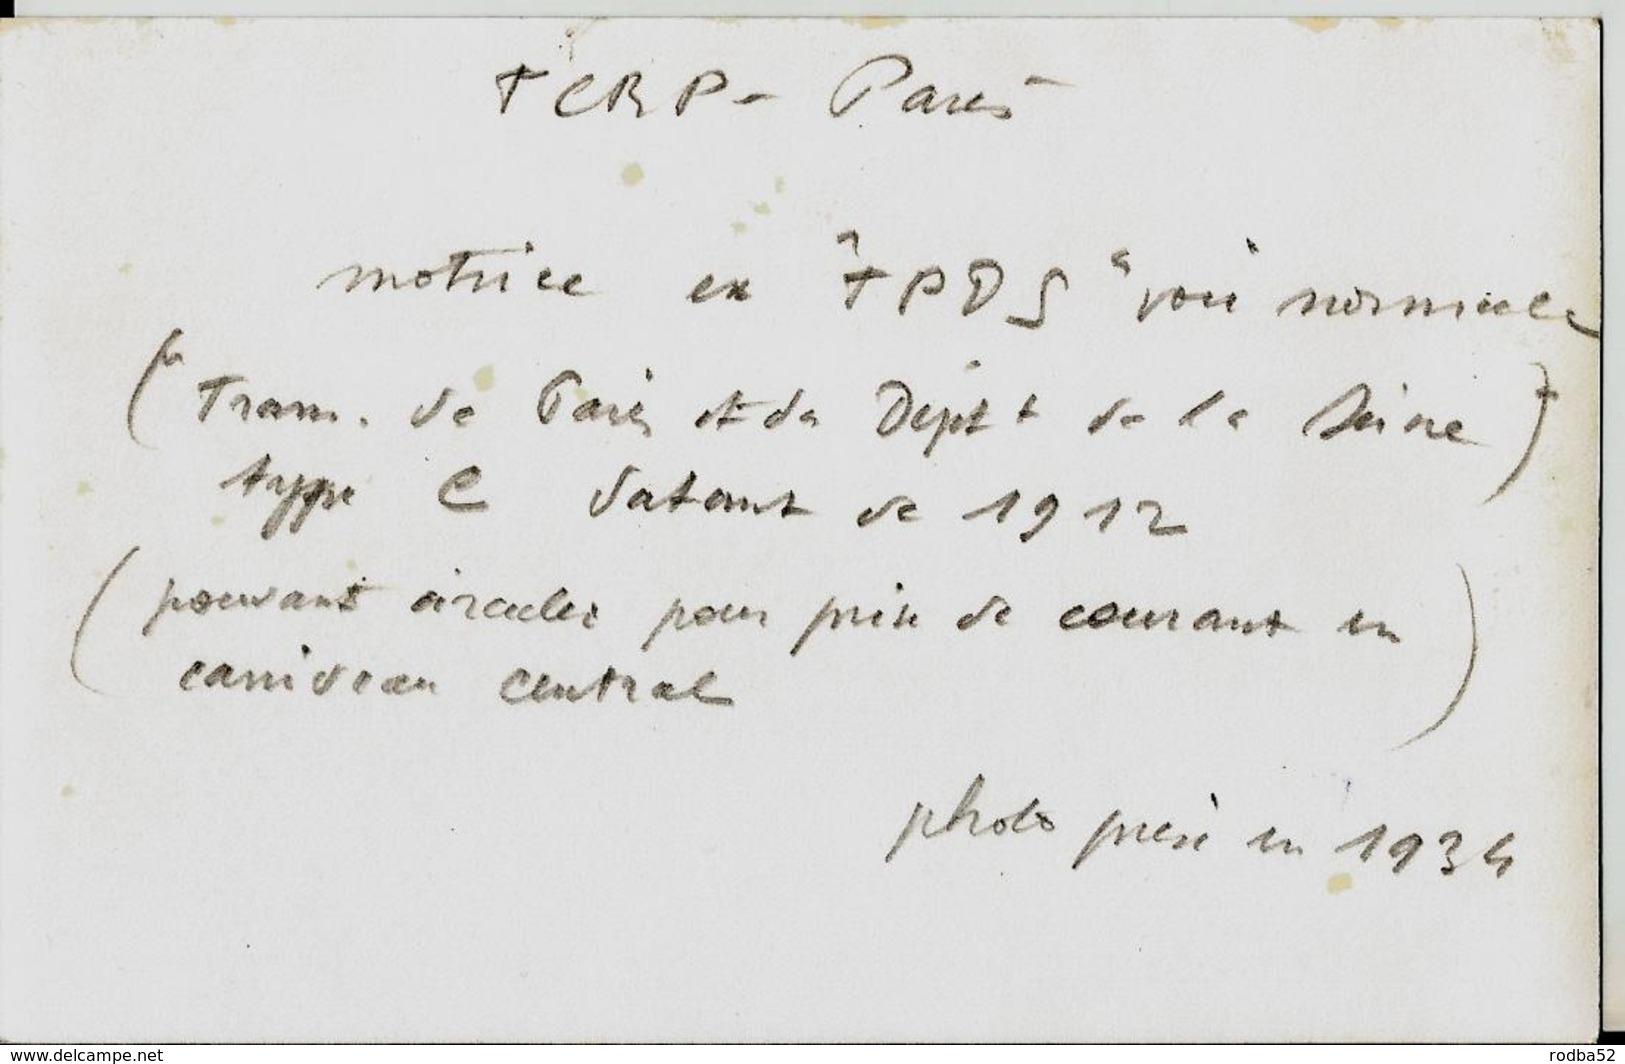 TCRP - Paris
motrice ex "TPDS" voie normale
("Tram. de Paris et du Dépt t de la Seine")
type C datant de 1912
(pouvant circuler pour prise de courant en
caniveau central)
photo prise en 1934
www.delcampe.net
rodba52